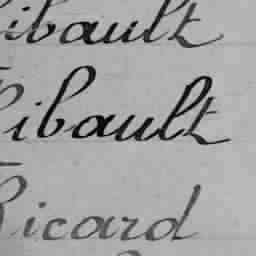 ibault
Ribault
Ricard